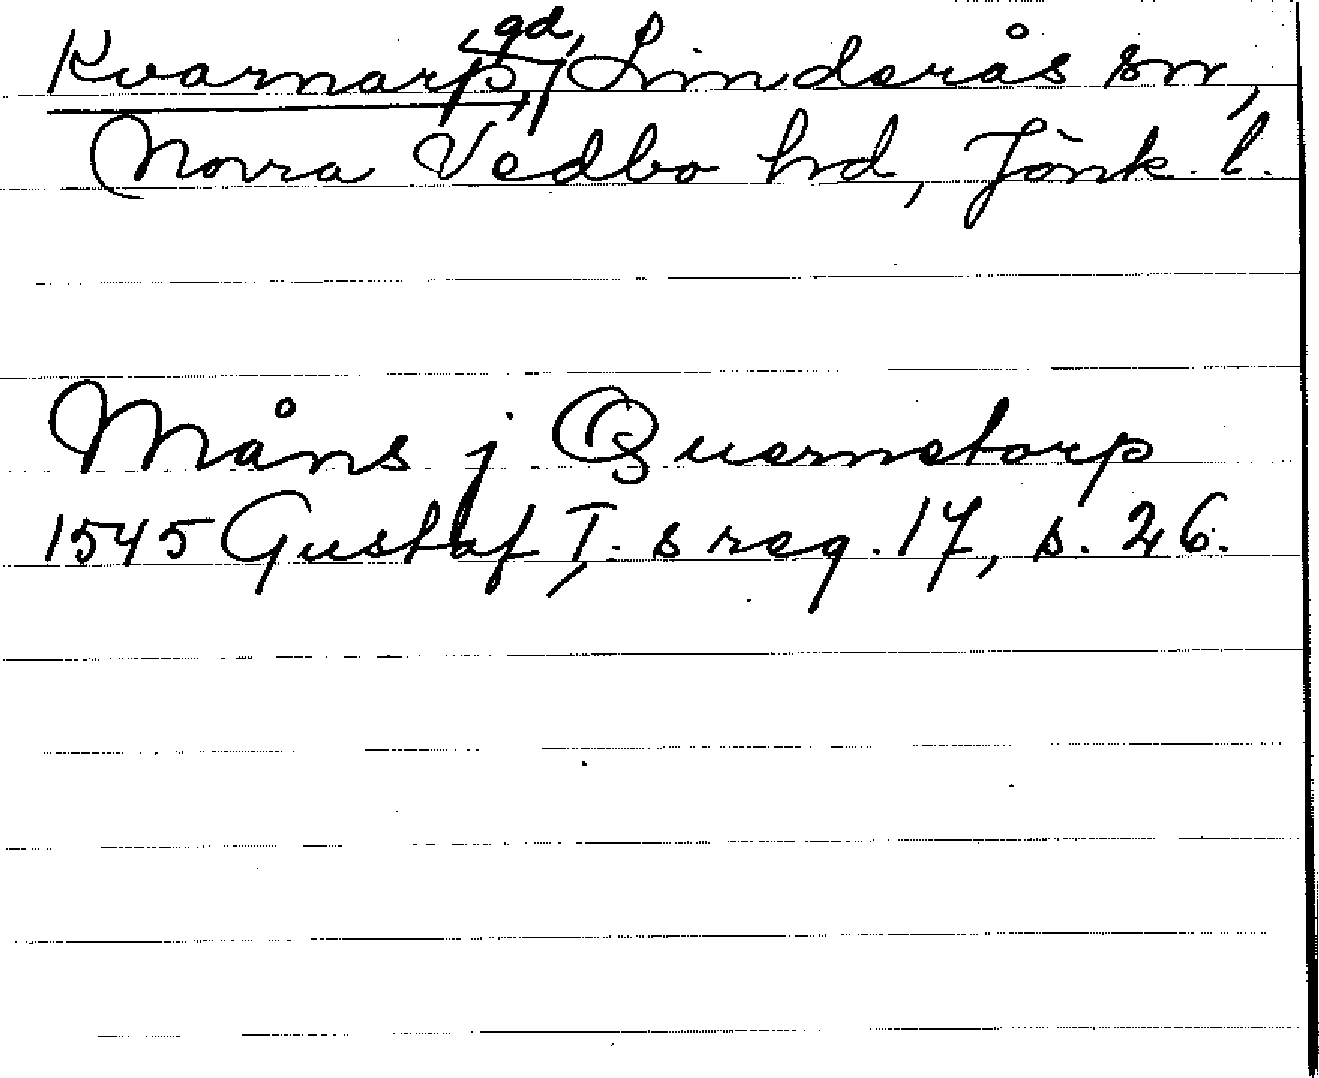 Kvarnarp, gd, Linderås sn,
Norra Vedbo hd, Jönk. l.
Måns j Quernetorp
1545 Gustaf I. s reg. 17, s. 26.